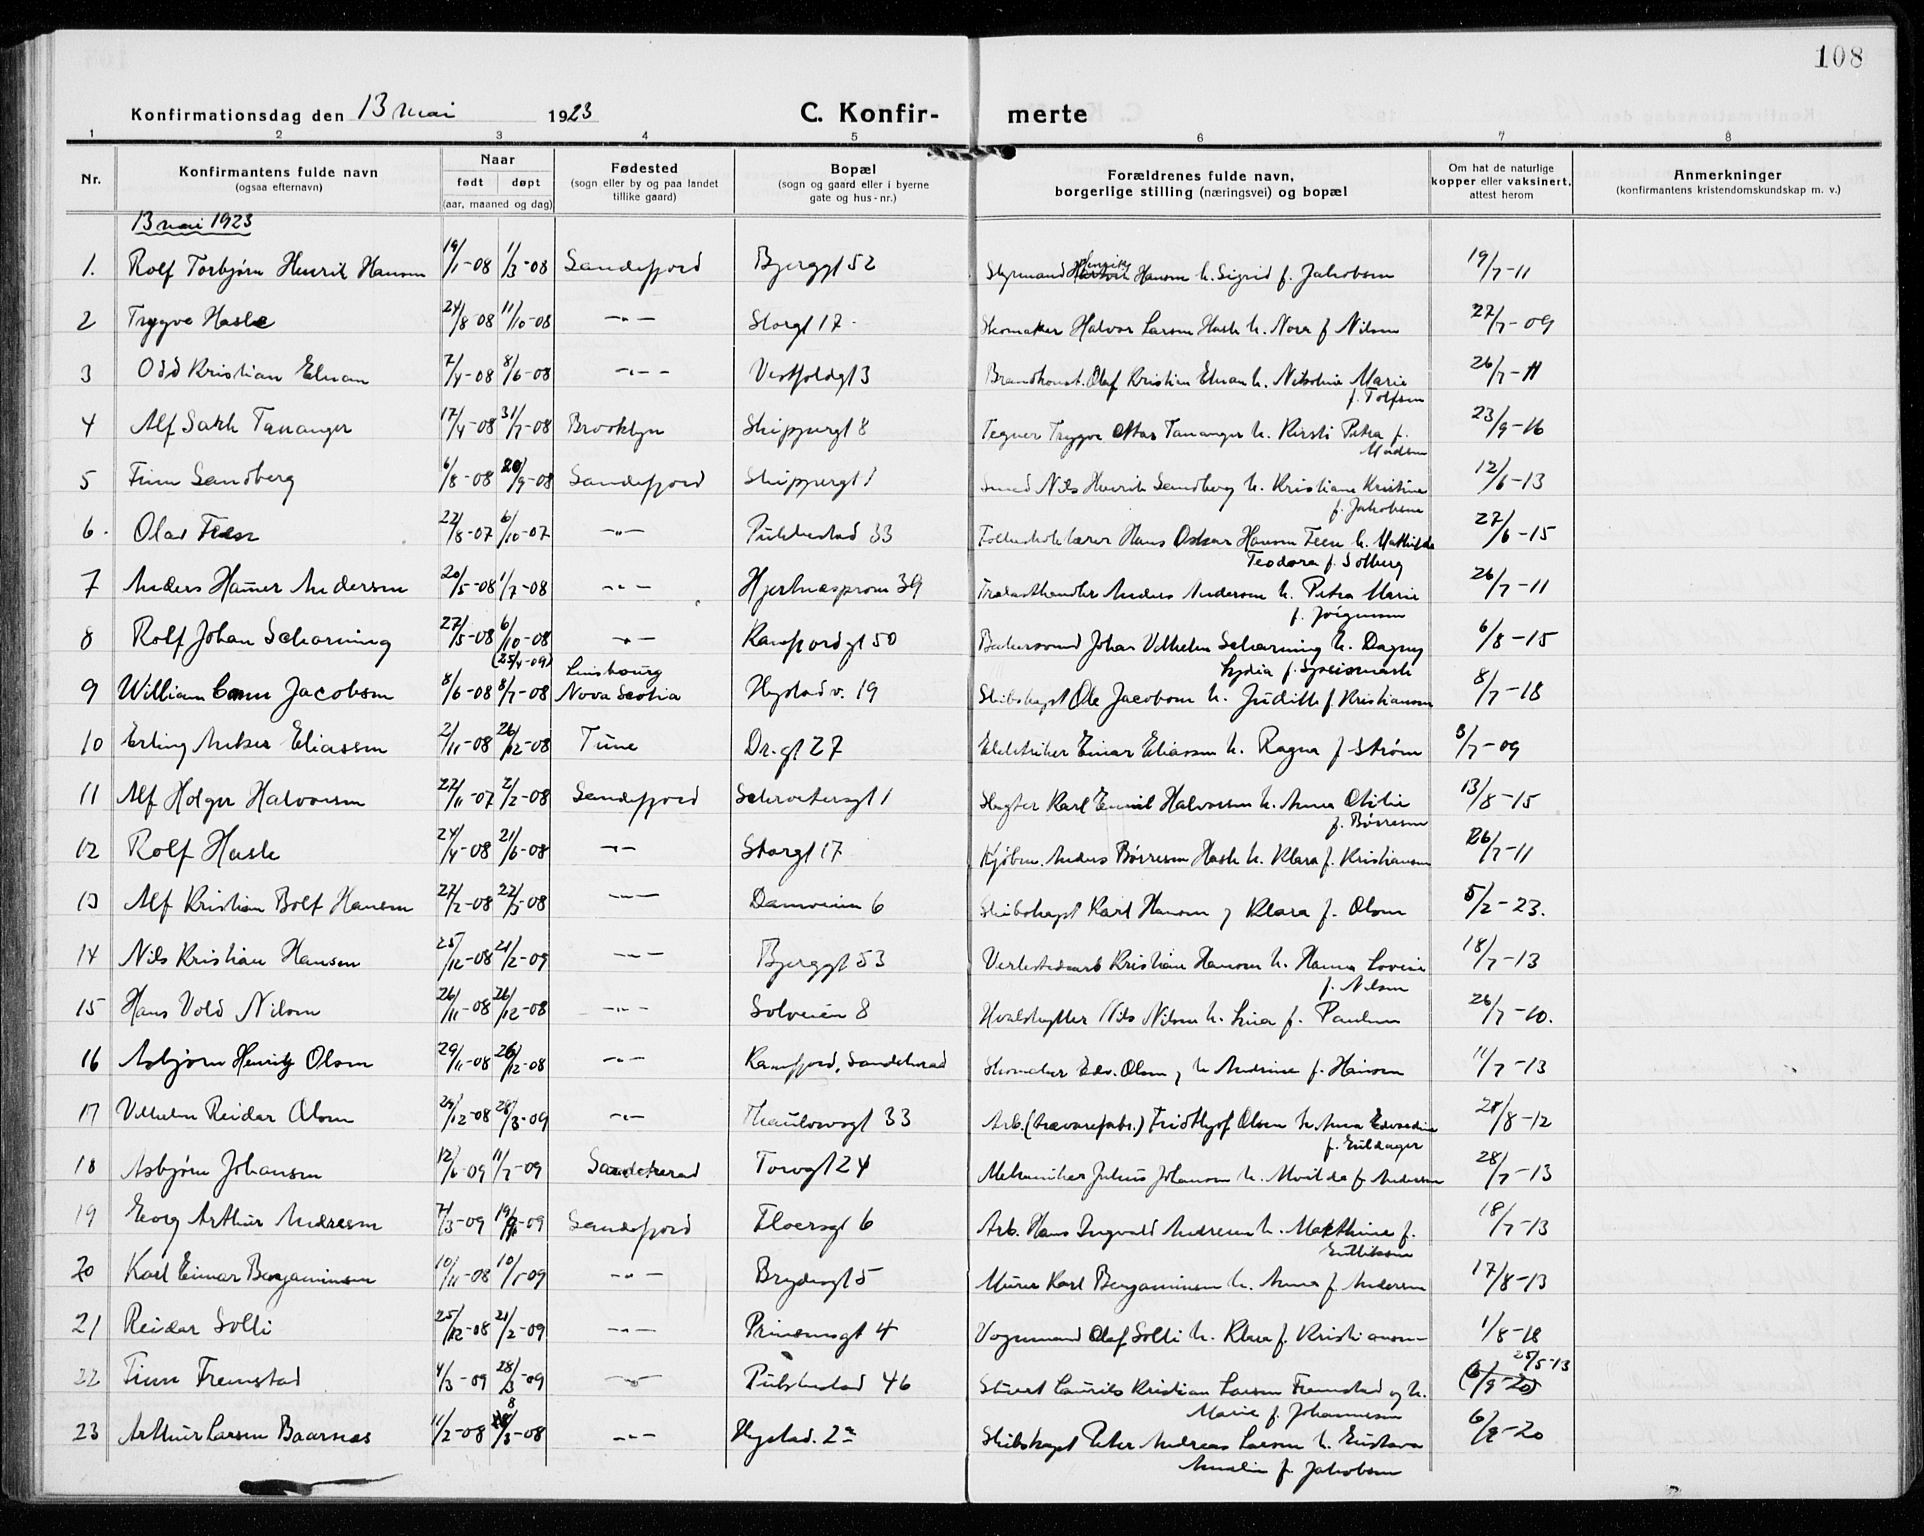 108
Konfirmationsdag den 13 mai 1923 C. Konfir- merte
1 2 3 4 5 6 7 8
Nr. Konfirmantens fulde navn (ogsaa efternavn) Naar født døpt (aar, maaned og dag) Fødested (sogn eller by og paa landet tillike gaard) Bopæl (sogn og gaard eller i byerne gate og hus-nr.) Forældrenes fulde navn, borgerlige stilling (næringsvei) og bopæl Om hat de naturlige kopper eller vaksinert, attest herom Anmerkninger (konfirmantens kristendomskundskap m. v.)
13 mai 1923
1. Rolf Torbjørn Henrik Hansen 19/1-08 1/3-08 Sandefjord Bjerggt 52 Styrmand Hansen h. Sigrid f. Jakobsen 19/7-11
2 Trygve Hasle 24/8-08 11/10-08 -"- Storgt 17 Skomaker Halvor Larsen Hasle h. Nora f Nilsen 27/7-09
3 Odd Kristian Elnan 7/4-08 8/6-08 -"- Vestfoldgt 3 Brandkonst. Olaf Kristian Elnan h. Nikoline Marie
f. Tolfsen 26/7-11
4 Alf Tananger 17/4-08 31/7-08 Brooklyn Skippergt 8 Tegner Trygve Tananger h. Kirsti Petra f.
Madsen 23/9-16
5 Finn Sandberg 6/8-08 20/9-08 Sandefjord Skippergt 1 Smed Nils Henrik Sandberg h. Kristiane Kristine
f. Jakobsen 12/6-13
6. Olav Feen 22/8-07 6/10-07 -"- Pukkestad 33 Folkeskolelærer Hans Oskar Hansen Feen h. Mathilde
Teodora f. Solberg 27/6-15
7 Anders Hamer Andersen 20/5-08 1/7-08 -"- Hjertnæsprom 39 Trælasthandler Anders Andersen h. Petra Marie
f. Jørgensen 26/7-11
8 Rolf Johan Scharning 27/5-08 6/10-08 -"- Kamfjordgt 50 Bakersvend Johan Vilhelm Scharning h. Dagny
Lydia f. 6/8-15
(25/4-09)
9 William Jacobsen 8/6-08 8/7-08 Nova Scotia Hystad v. 19 Skibskapt Ole Jacobsen h. Judith f. Kristiansen 8/7-18
10 Erling Anker Eliassen 2/11-08 26/12-08 Tune Dr.gt 27 Elektriker Einar Eliassen h. Ragna f. Strøm 3/7-09
11 Alf Holger Halvorsen 27/11-07 2/2-08 Sandefjord Schrøtersgt 1 Slagter Karl Emil Halvorsen h. Anna Otilie
f. Børresen 13/8-15
12 Rolf Hasle 24/4-08 21/6-08 -"- Storgt 17 Kjøbm. Anders Børresen Hasle h. Klara f. Kristiansen 26/7-11
13 Alf Kristian Rolf Hansen 27/2-08 22/3-08 -"- Damveien 6 Skibskapt Karl Hansen , Klara f. Olsen 5/2-23.
14 Nils Kristian Hansen 25/12-08 21/2-09 -"- Bjerggt 53 Verkstedsarb Kristian Hansen h. Hanna Lovise
f. Nilsen 18/7-13
15 Hans Vold Nilsen 26/11-08 26/12-08 -"- Solveien 8 Hvalskytter Nils Nilsen h. Lina f. Paulsen 26/7-10.
16 Asbjørn Henrik Olsen 29/11-08 26/12-08 -"- Kamfjord, Sandeherad Skomaker Edv. Olsen , h Andrine f. Hansen 11/7-13
17 Vilhelm Reidar Olsen 29/12-08 28/3-09 -"- Thaulowsgt 33 Arb. (trævarefabr.) Fridthjof Olsen h. Anna Edvardine
f. Guldager 28/8-12
18 Asbjørn Johansen 12/6-09 11/7-09 Sandeherad Torvgt 24 Mekaniker Julius Johansen h. Alvilda f. Andersen 28/7-13
19 Georg Arthur Andresen 7/3-09 Sandefjord Floersgt 6 Arb. Hans Ingvald Andresen h. Mathine f.
Gulliksen 18/7-13
20 Karl Einar Benjaminsen 10/11-08 10/1-09 -"- Brydesgt 5 Murer Karl Benjaminsen h. Anna f. Andersen 17/8-13
21 Reidar Solli 25/12-08 21/2-09 -"- Prinsensgt 4 Vognmand Olaf Solli h. Klara f. Kristiansen 1/8-18
22 Finn Fremstad 4/3-09 28/3-09 -"- Pukkestad 46 Stuert Laurits Kristian Larsen Fremstad og h.
Marie f. Johannesen (6/9-20) 25/5-13
23 Arthur Larsen Baarnes 11/2-08 8/3-08 -"- Hystad. 2a Skibskapt Peter Andreas Larsen h. Gustava
Amalie f. Jakobsen 6/9-20